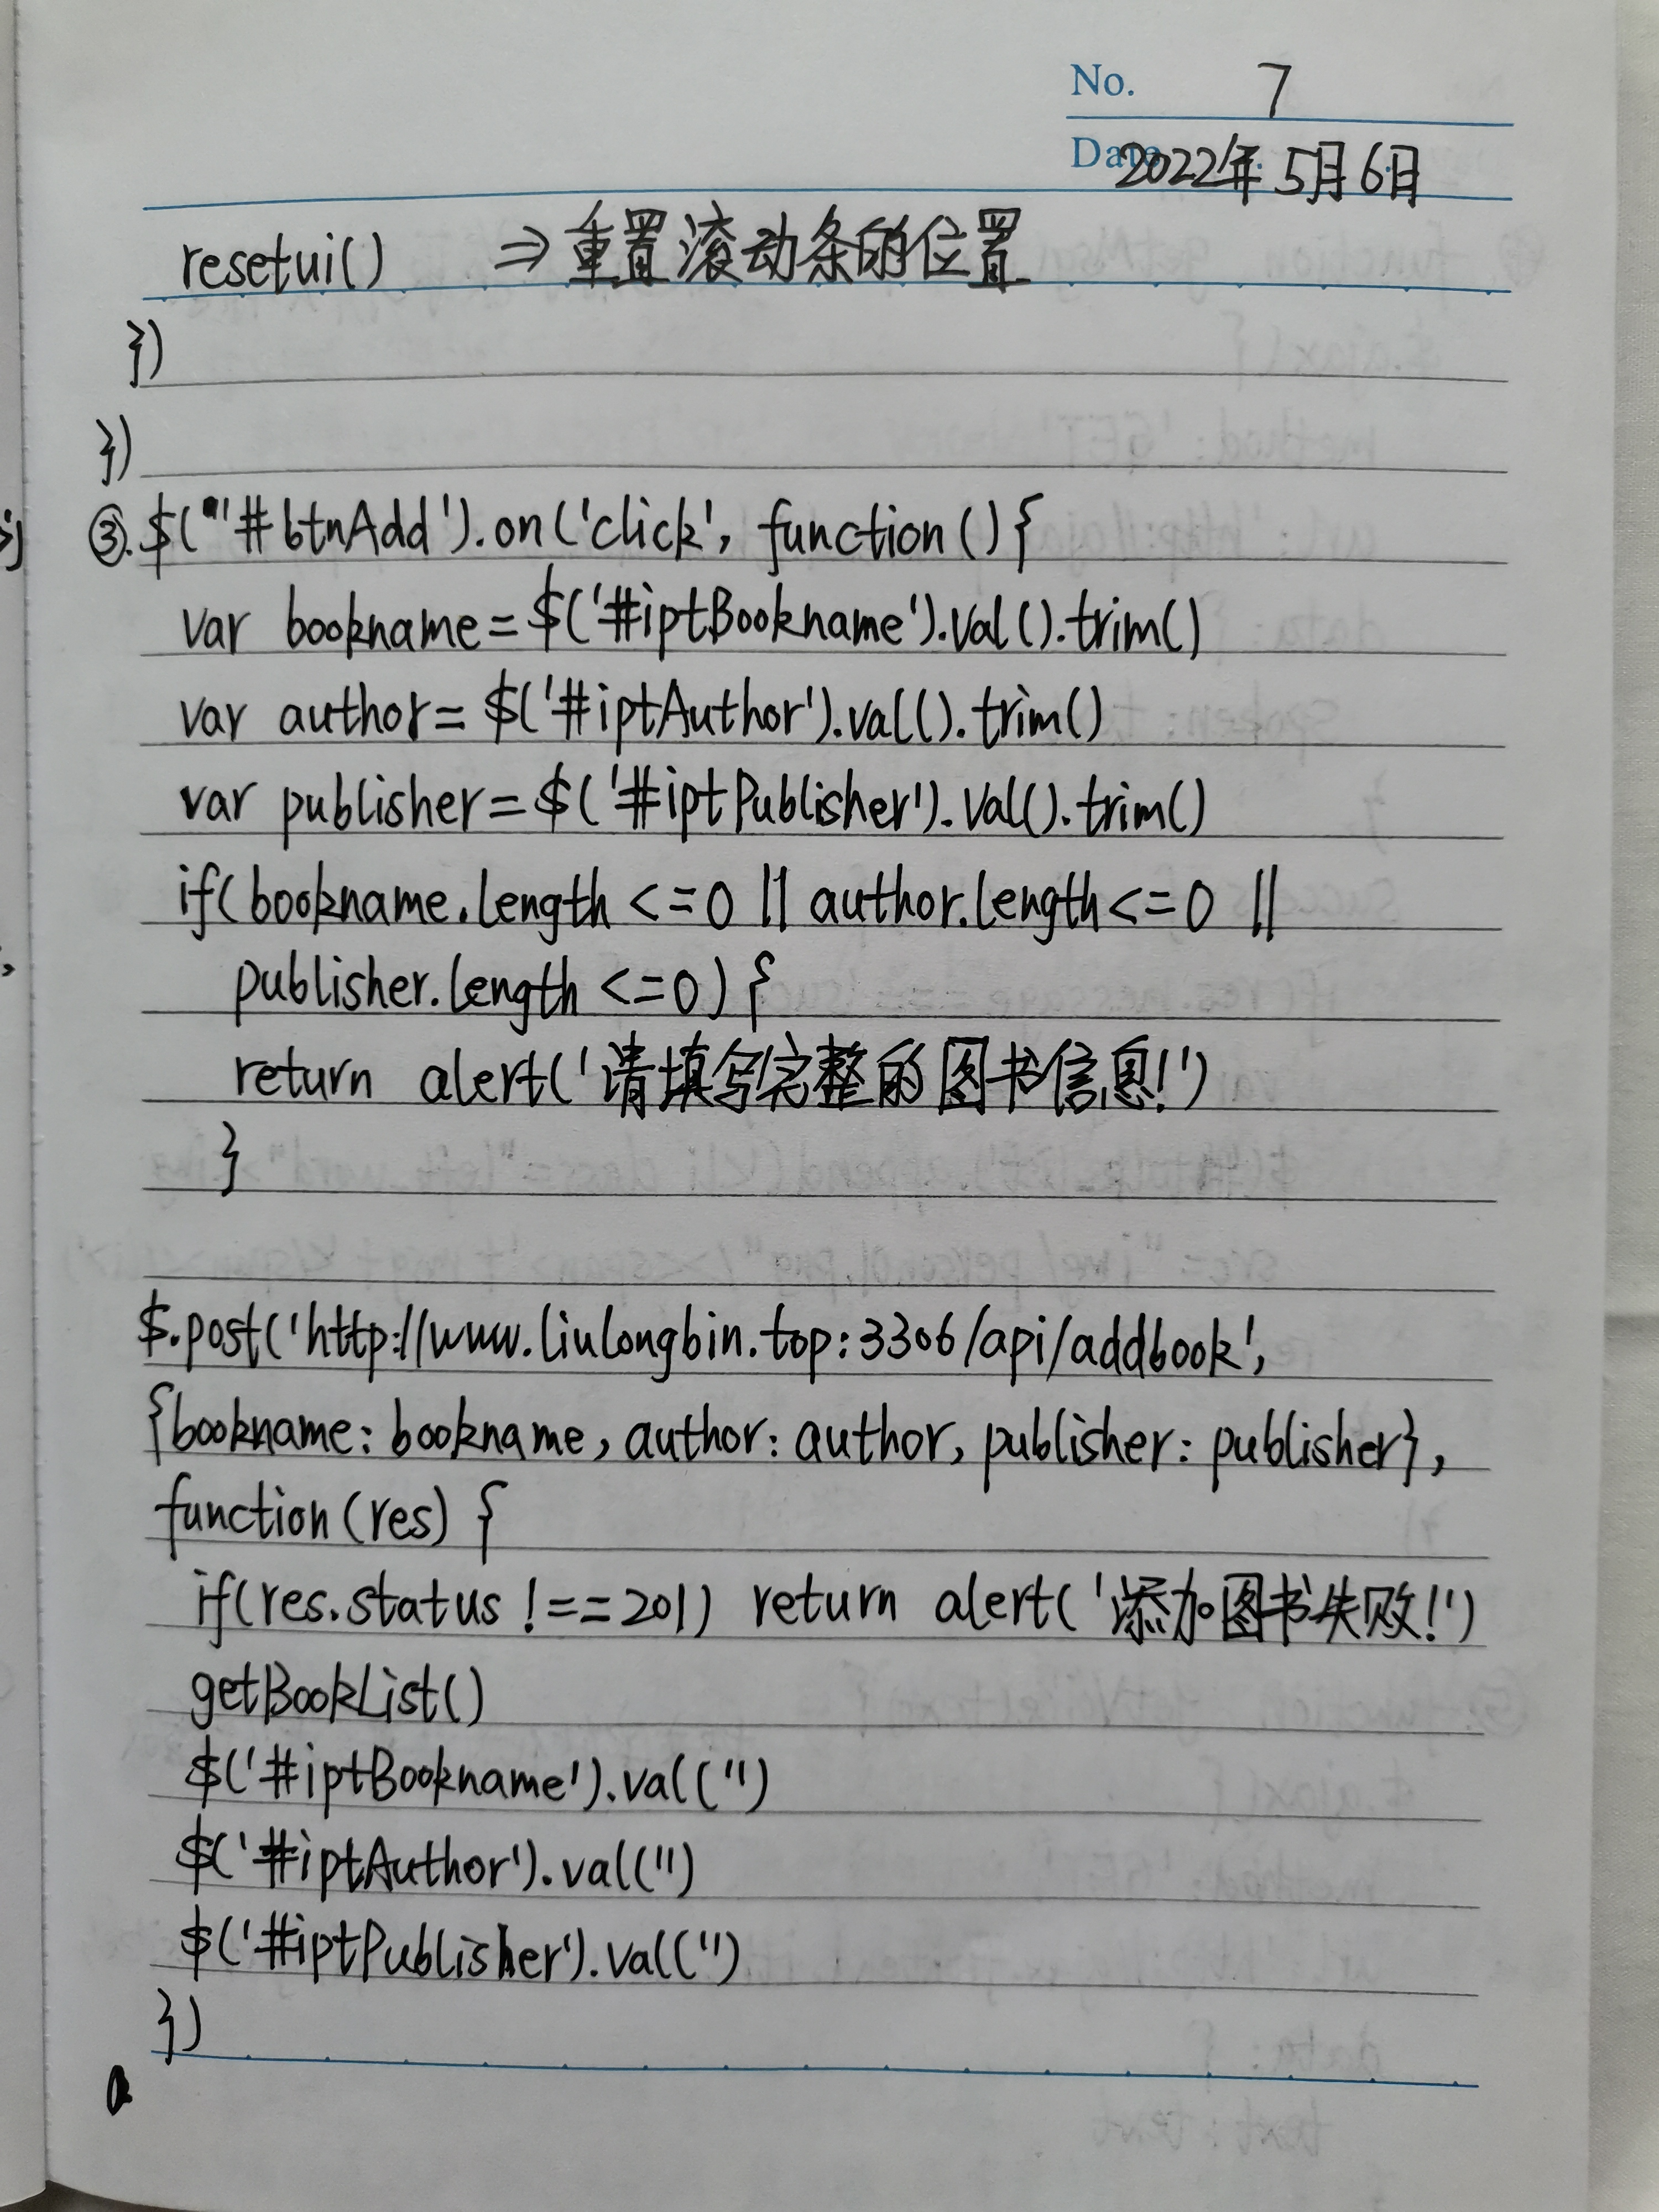 No. 7
Date 2022年5月6日
resetui() ⇒重置滚动条的位置
})
})
③.$('#btnAdd').on('click', function(){
var bookname=$('#iptBookname').val().trim()
var author=$('#iptAuthor').val().trim()
var publisher=$('#iptPublisher').val().trim()
if(bookname.length <=0 || author.length<=0 ||
publisher.length <=0) {
return alert('请填写完整的图书信息!')
}
$.post('http://www.liulongbin.top:3306/api/addbook',
{bookname: bookname, author: author, publisher: publisher},
function(res) {
if(res.status !==201) return alert('添加图书失败!')
getBookList()
$('#iptBookname').val('')
$('#iptAuthor').val('')
$('#iptPublisher').val('')
})